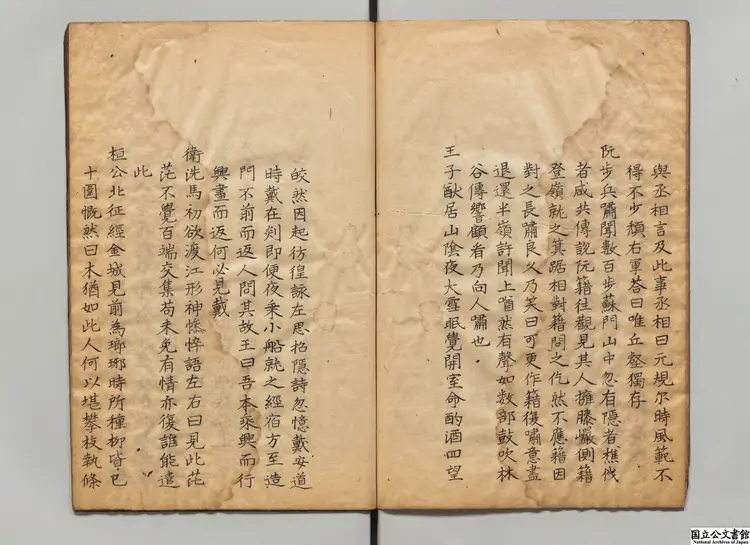 與丞相言及此事丞相曰元規尔時風範不
得不少頹右軍荅曰唯丘壑獨存
阮步兵嘯聞數百步蘇門山中忽有隱者樵伐
者咸共傳説阮籍往觀見其人擁膝巖側籍
登嶺就之箕踞相對籍問之仡然不應籍因
對之長嘯良久乃笑曰可更作籍復嘯意盡
退還半嶺許聞上𠾱然有聲如数部鼓吹林
谷傳響顧看乃向人嘯也
王子猷居山陰夜大雪眠覺開室命酌酒四望
皎然因起彷徨詠左思招隱詩忽憶戴安道
時戴在剡即便夜乗小船就之經宿方至造
門不前而返人問其故王曰吾本乗興而行
興盡而返何必見戴
衛洗馬初欲渡江形神憔悴語左右曰見此茫
茫不覺百端交集苟未免有情亦復誰能遣
此
桓公北征經金城見前為瑯琊時所種栁皆已
十圍慨然曰木猶如此人何以堪攀枝執條
国立公文書館
National Archives of Japan